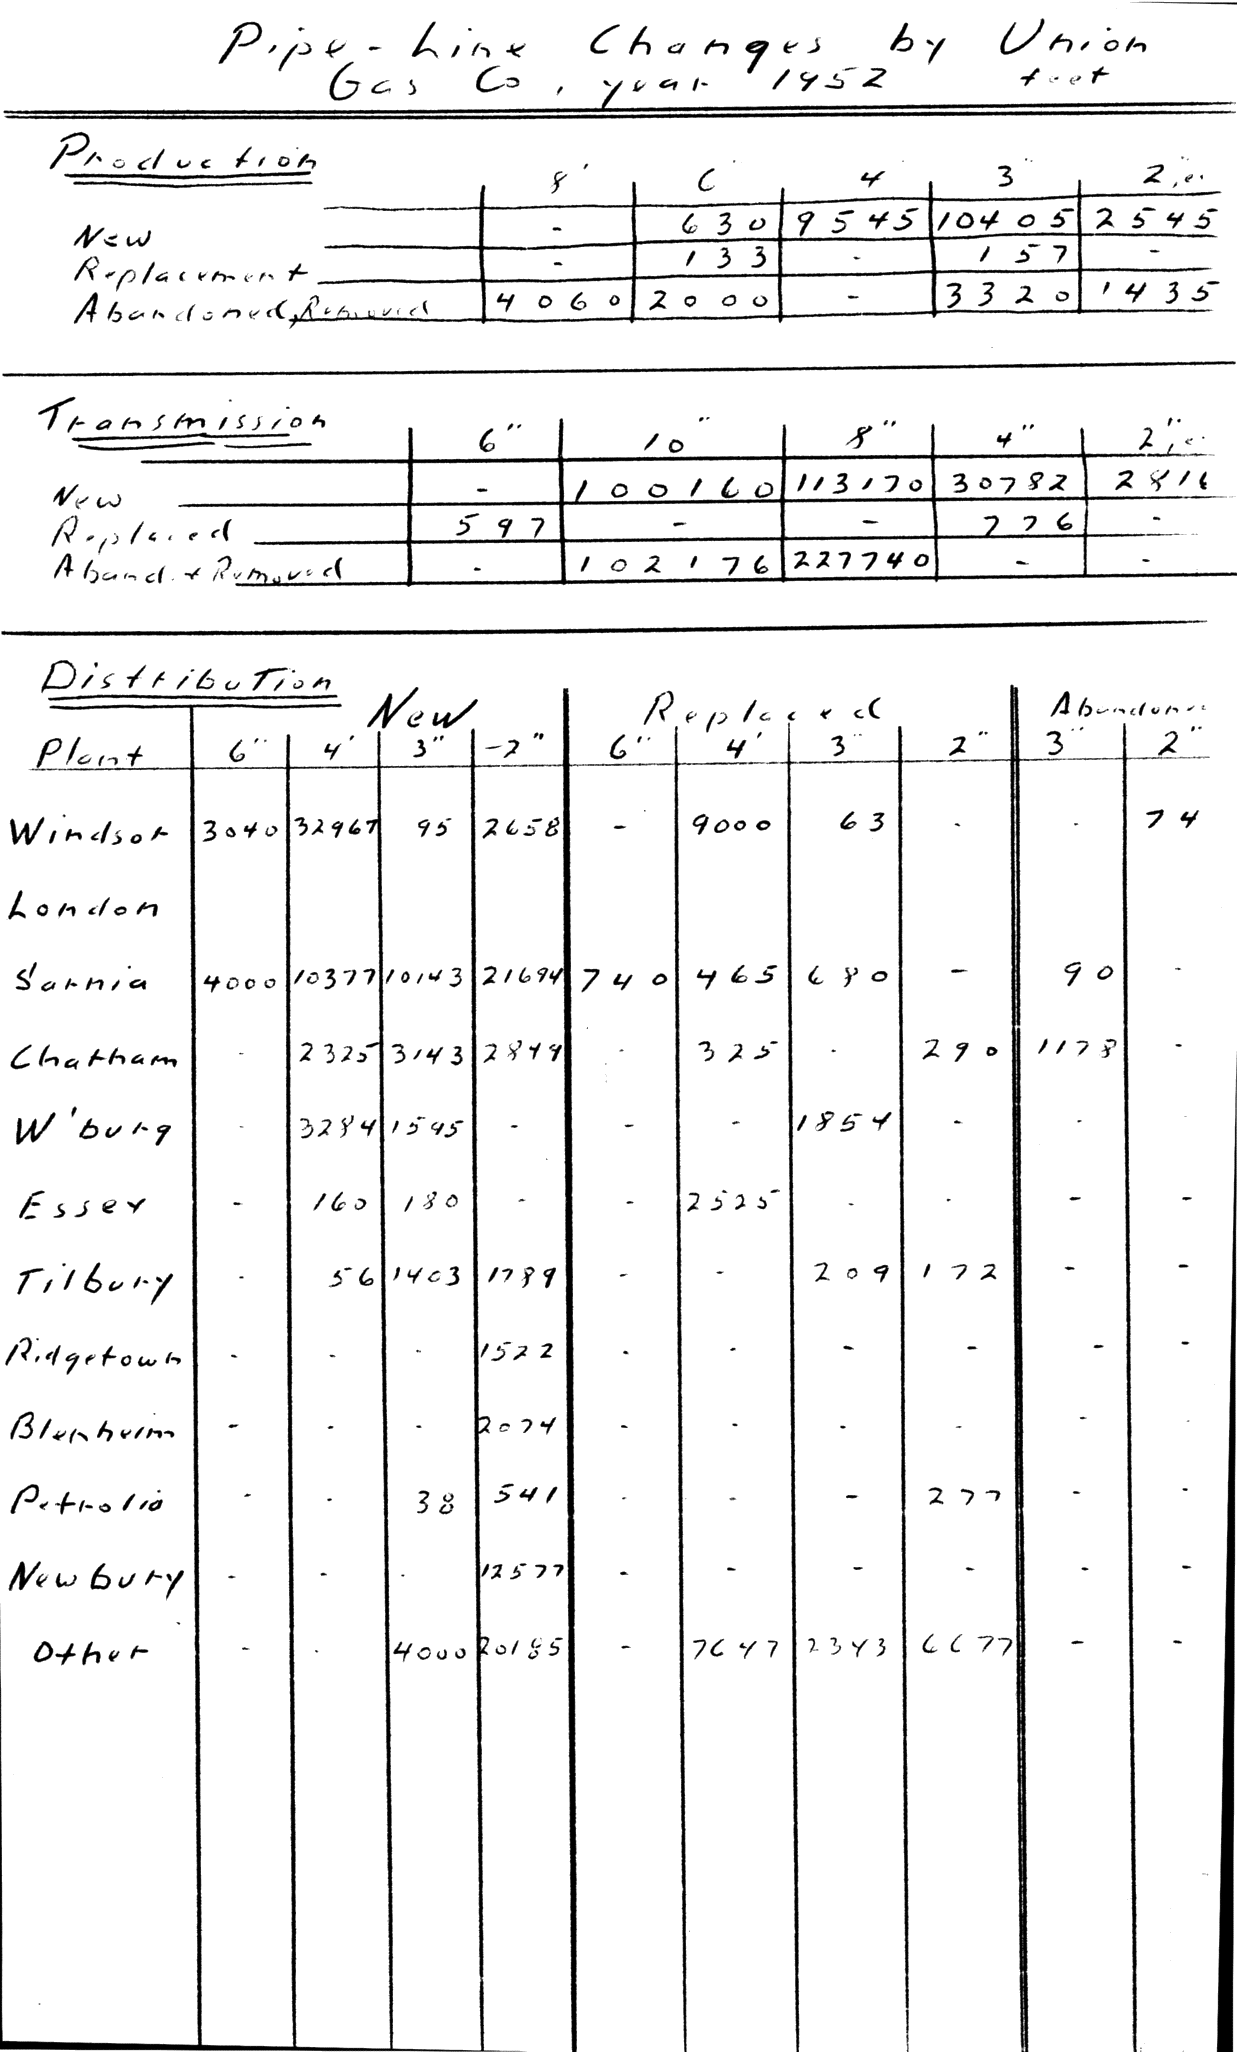 Pipe-Line Changes by Union
Gas Co, year 1952 feet
Production
8" 6" 4" 3" 2"
New - 630 9545 10405 2545
Replacement - 133 - 157 -
Abandoned, Removed 4060 2000 - 3320 1435
Transmission
6" 10" 8" 4" 2"
New - 100160 113170 30782 2816
Replaced 597 - - 776 -
Aband. + Removed - 102176 227740 - -
Distribution
New Replaced Abandone
Plant 6" 4" 3" 2" 6" 4" 3" 2" 3" 2"
Windsor 3040 32967 95 2658 - 9000 63 - - 74
London
Sarnia 4000 10377 10143 21694 740 465 680 - 90 -
Chatham - 2325 3143 2849 - 325 - 290 1178 -
W'burg - 3284 1595 - - - 1854 - - -
Essex - 160 180 - - 2525 - - - -
Tilbury - 56 1403 1789 - - 209 172 - -
Ridgetown - - - 1522 - - - - - -
Blenheim - - - 2074 - - - - - -
Petrolia - - 38 541 - - - 277 - -
Newbury - - - 12577 - - - - - -
Other - - 4000 20185 - 7647 2343 6677 - -